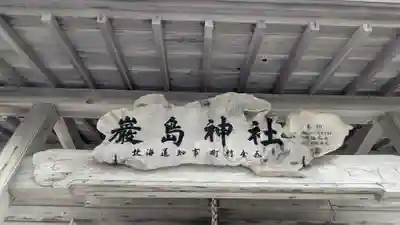 嚴島神社
北海道知事 町村金五